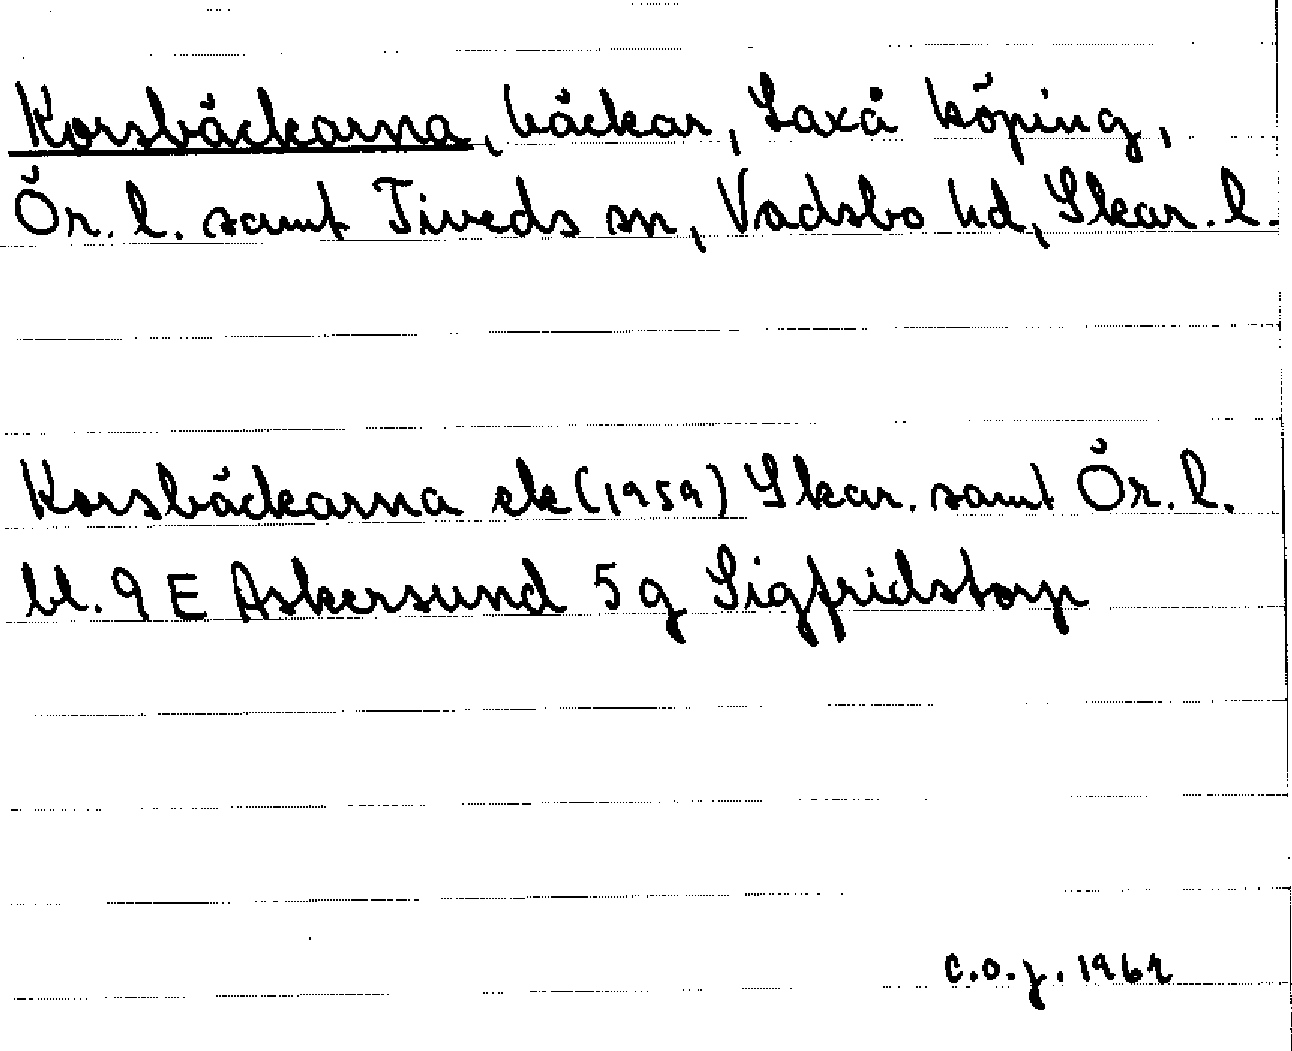 Korsbäckarna, bäckar, Laxå köping,
Ör. l. samt Tiveds sn, Vadsbo hd, Skar. l.
Korsbäckarna ek (1959) Skar. samt Ör. l.
bl. 9 E Askersund 5 g Sigfridstorp
C.O.J. 1969